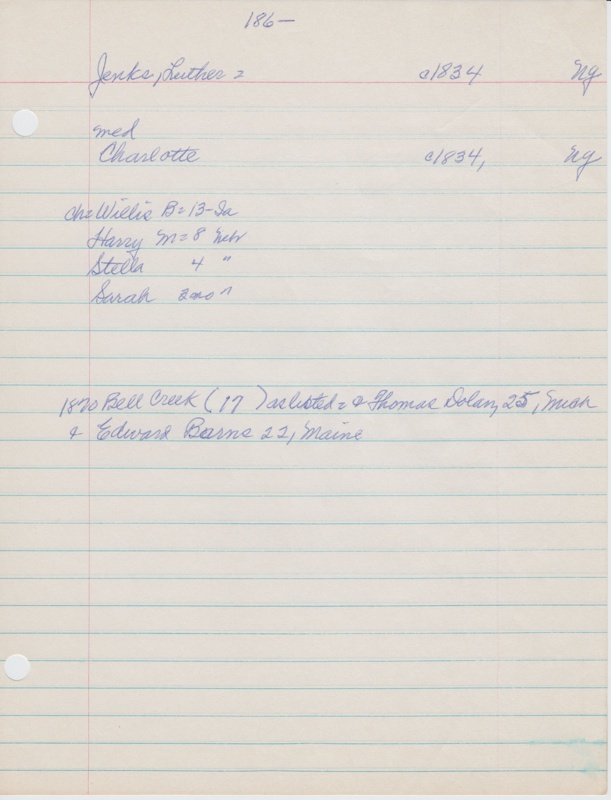 186—
Jenks, Luther = c1834 Ny
med
Charlotte c1834, Ny
ch= Willis B= 13- Ia
Harry M= 8 Nebr
Stella 4 "
Sarah 2mo "
1870 Bell Creek (17) as listed = & Thomas Dolan, 25, Mich
& Edward Barns 22, Maine